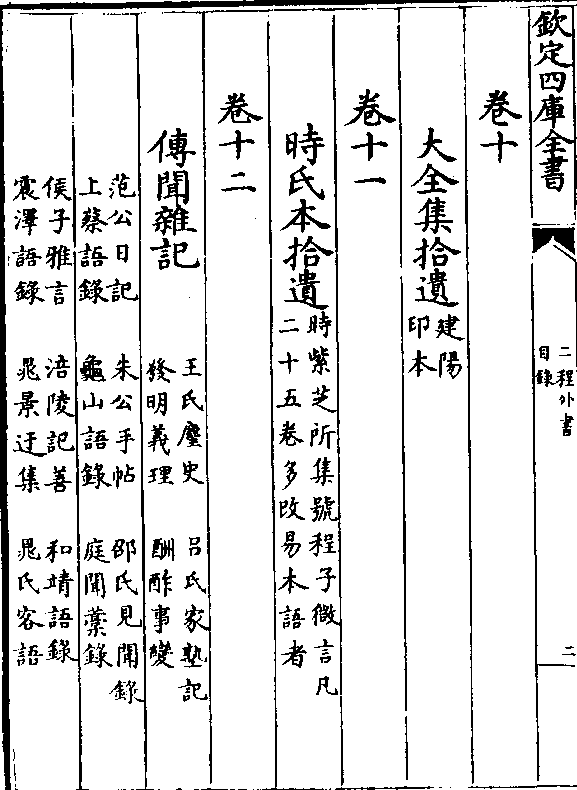 欽定四庫全書
二程外書
目錄
二
卷十
大全集拾遺建陽
印本
卷十一
時氏本拾遺時紫芝所集號程子微言凡
二十五卷多改易本語者
卷十二
傳聞雜記
王氏麈史 呂氏家塾記
發明義理 酬酢事變
范公日記 朱公手帖 邵氏見聞錄
上蔡語錄 龜山語錄 庭聞藁錄
侯子雅言 涪陵記善 和靖語錄
震澤語錄 晁景迂集 晁氏客語